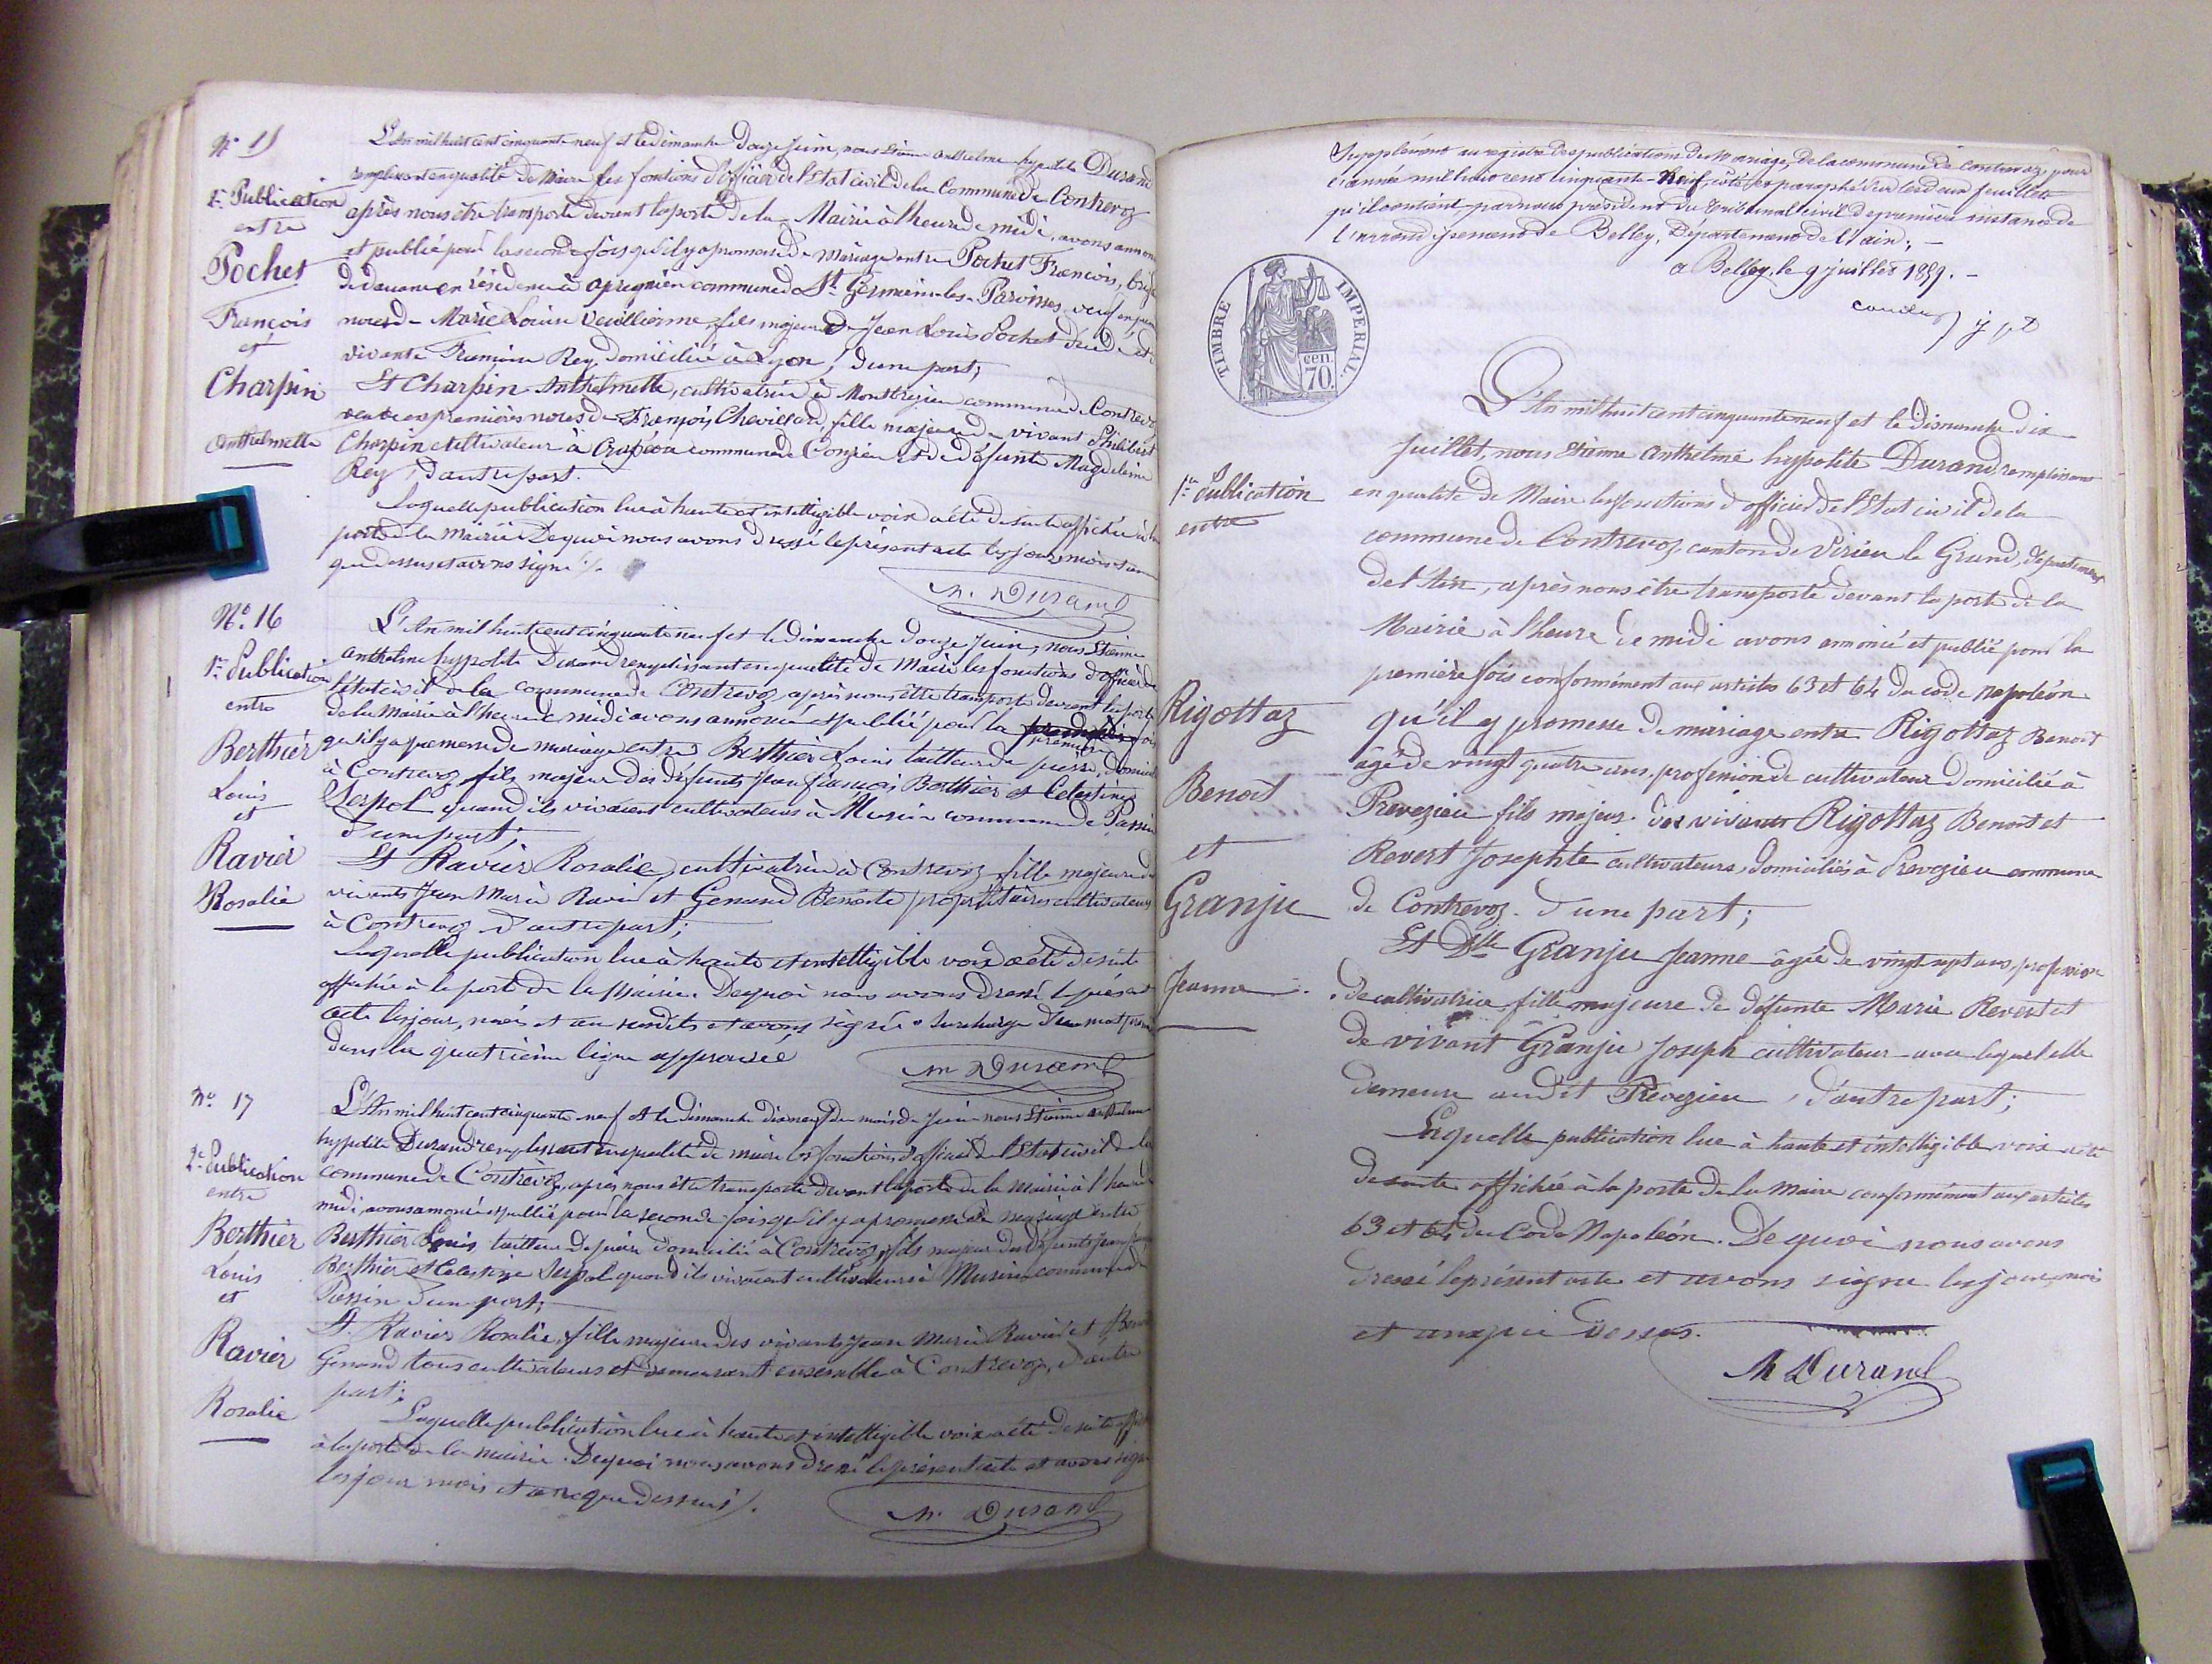 N° 15
1e Publication
entre
Pochet
François
et
Charpin
Anthelmette
L'An mil huit cent cinquante neuf et le dimanche douze Juin, nous Etienne Anthelme hypolite Durand
remplissant en qualité de Maire les fonctions d'Officier de l'Etat civil de la Commune de Contrevoz
après nous être transporté devant la porte de la Mairie à l'heure de midi, avons annoncé
et publié pour la seconde fois qu'il y a promesse de mariage entre Pochet François,
de douane en résidence à commune de St Germain-les-Paroisses, veuf en
noces de Marie Louise Veuillerme, fils majeur de Jean Louis Pochet décédé et de
vivante Rey, domiciliée à Lyon, d'une part;
Et Charpin Anthelmette, cultivatrice à Montbrezieu commune de Contrevoz
veuve en premières noces de François Chevillard, fille majeure de vivant Philibert
Charpin cultivateur à commune de Conzieu et de défunte Magdeleine
Rey, d'autre part.
Laquelle publication lue à haute et intelligible voix a été de suite affichée à la
porte de la Mairie De quoi nous avons dressé le présent acte les jour, mois et an
que dessus et avons signé ./.
M. Durand
N° 16
1re Publication
entre
Berthier
Louis
et
Ravier
Rosalie
L'An mil huit cent cinquante neuf et le dimanche douze Juin, nous Etienne
Anthelme hypolite Durand remplissant en qualité de Maire les fonctions d'officier de
l'état civil de la commune de Contrevoz, après nous être transporté devant la porte
de la Mairie à l'heure de midi avons annoncé et publié pour la première fois
qu'il y a promesse de mariage entre Berthier Louis tailleur de pierre, domicilié
à Contrevoz, fils majeur des défunts Jean François Berthier et Célestine
Serpol quand ils vivaient cultivateurs à Musin commune de Passin
d'une part;
Et Ravier Rosalie, cultivatrice à Contrevoz fille majeure de
vivants Jean Marie Ravier et Genand Benoite propriétaires cultivateurs
à Contrevoz d'autre part;
Laquelle publication lue à haute et intelligible voix a été de suite
affichée à la porte de la Mairie. De quoi nous avons dressé le présent
acte les jour, mois et an susdits et avons signé. Surcharge d'un mot
dans la quatrième ligne approuvée
M Durand
N° 17
2e Publication
entre
Berthier
Louis
et
Ravier
Rosalie
L'An mil huit cent cinquante neuf et le dimanche dix neuf du mois de Juin nous Etienne Anthelme
hypolite Durand remplissant en qualité de maire les fonctions d'officier de l'Etat civil de la
commune de Contrevoz, après nous être transporté devant la porte de la Mairie à l'heure de
midi, avons annoncé et publié pour la seconde fois qu'il y a promesse de mariage entre
Berthier Louis tailleur de pierre domicilié à Contrevoz, fils majeur des défunts Jean
Berthier et Célestine Serpol quand ils vivaient cultivateurs à Musin commune de
Passin d'une part;
Et Ravier Rosalie, fille majeure des vivants Jean Marie Ravier et
Genand tous cultivateurs et demeurant ensemble à Contrevoz, d'autre
part;
Laquelle publication lue à haute et intelligible voix a été de suite affichée
à la porte de la mairie. De quoi nous avons dressé le présent acte et avons signé
les jour mois et an que dessus ./.
M. Durand
Supplément au registre des publications de Mariage, de la commune de Contrevoz pour
l'année mil huit cent cinquante-Neuf, coté et paraphé feuillets
qu'il contient par nous président du tribunal civil de première instance de
l'arrondissement de Belley, Département de l'ain. -
a Belley, le 9 juillet 1859. -
TIMBRE IMPERIAL
cen.
70.
1re Publication
entre
Rigottaz
Benoit
et
Granju
Jeanne
L'An mil huit cent cinquante neuf et le Dimanche dix
Juillet, nous Etienne Anthelme hypolite Durand remplissant
en qualité de Maire les fonctions d'officier de l'Etat civil de la
commune de Contrevoz, canton de Virieu le Grand, département
de l'Ain, après nous être transporté devant la porte de la
Mairie à l'heure de midi avons annoncé et publié pour la
première fois conformément aux articles 63 et 64 du code Napoléon
qu'il y promesse de mariage entre Rigottaz Benoit
âgé de vingt quatre ans, profession de cultivateur domicilié à
Prevezieu fils majeur des vivants Rigottaz Benoit et
Revert Josephte cultivateurs, domiciliés à Prevezieu commune
de Contrevoz. d'une part;
Et Dlle Granju Jeanne âgée de vingt sept ans, profession
de cultivatrice fille majeure de défunte Marie Revert et
de vivant Granju Joseph cultivateur avec lequel elle
demeure audit Prevezieu, d'autre part;
Laquelle publication lue à haute et intelligible voix a été
de suite affichée à la porte de la Maire conformément aux articles
63 et 64 du Code Napoléon. De quoi nous avons
dressé le présent acte et avons signé les jour, mois
et an que dessus.
M Durand